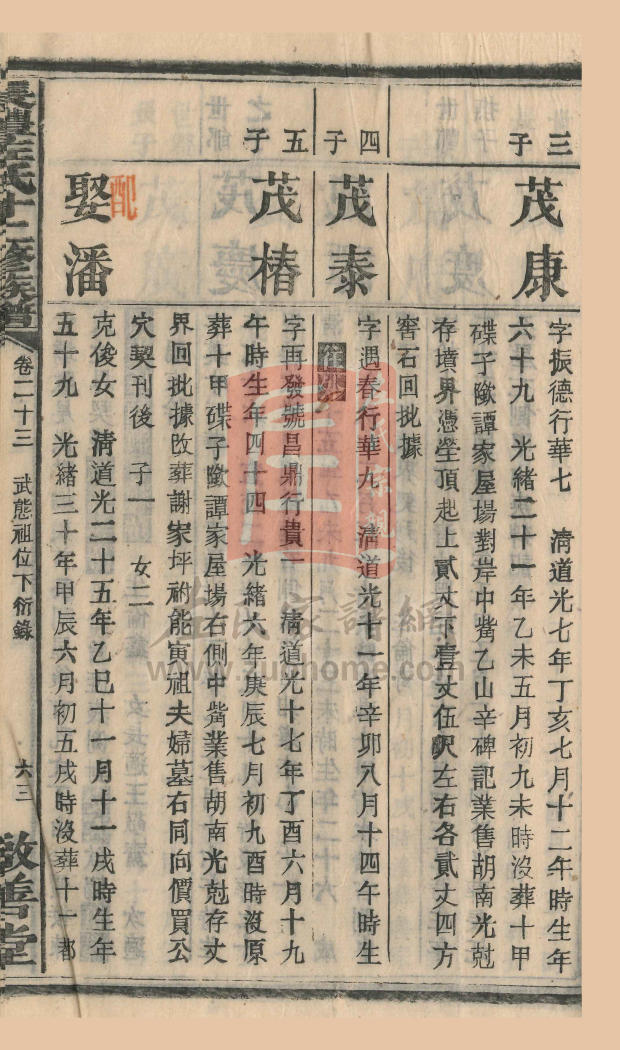 三子
茂康
字振德行華七　清道光七年丁亥七月十二午時生年
六十九　光緒二十一年乙未五月初九未時沒葬十甲
碟子歘譚家屋塲對岸中觜乙山辛碑記業售胡南光尅
存墳界憑塋頂起上貳丈下壹丈伍尺左右各貳丈四方
窖石回批據
四子
茂泰
字遇春行華九　清道光十一年辛卯八月十四午時生
往
五子
茂椿
字再發號昌鼎行貴一　清道光十七年丁酉六月十九
午時生年四十四　光緒六年庚辰七月初九酉時沒原
葬十甲碟子歘譚家屋塲右側中觜業售胡南光尅存丈
界回批據改葬謝家坪祔能寅祖夫婦墓右同向價買公
穴契刊後　子一　女二
配
娶潘
克俊女　清道光二十五年乙巳十一月十一戌時生年
五十九　光緒三十年甲辰六月初五戌時沒葬十一都
左氏十二修族譜
卷二十三　武態祖位下衍錄
六三
敬善堂
左氏家譜網
www.zuohome.com